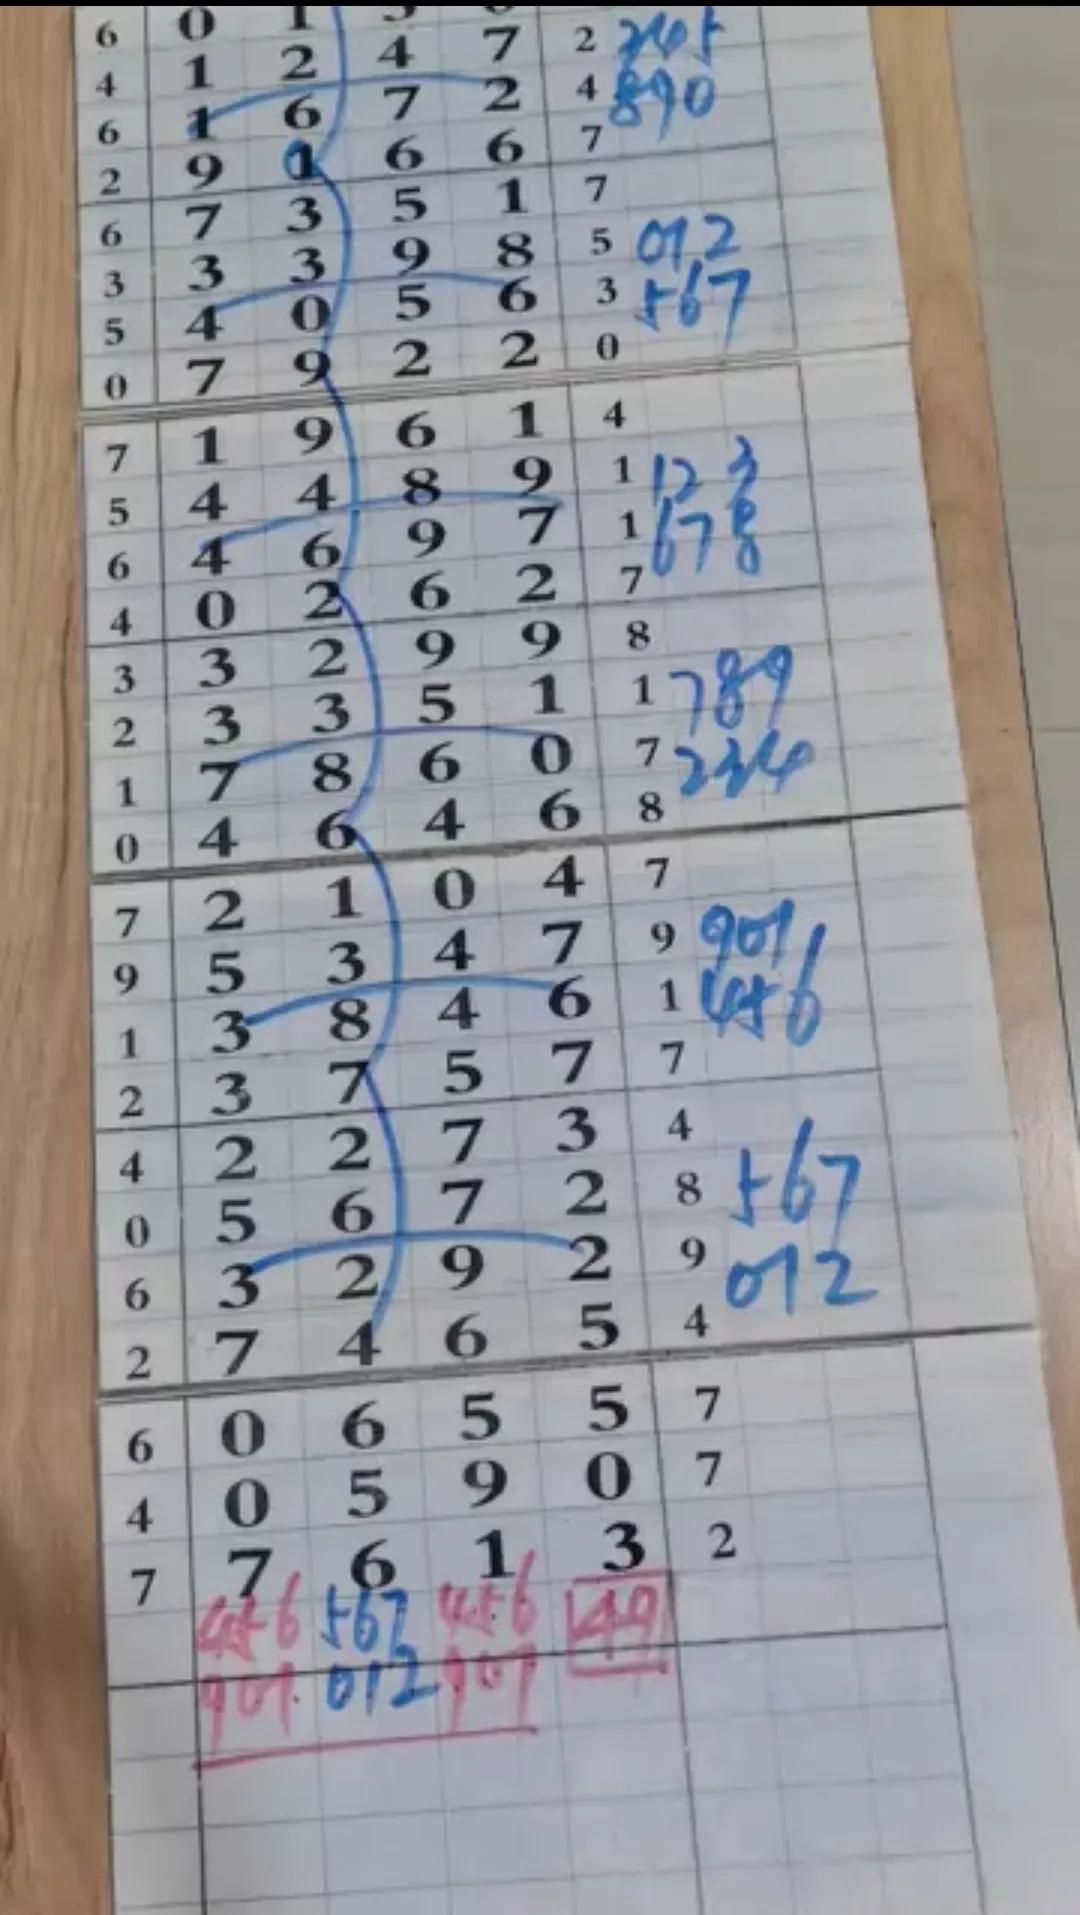 6 0 1
4 1 2 4 7 2 345
6 1 6 7 2 4 890
2 9 1 6 6 7
6 7 3 5 1 7
3 3 3 9 8 5 012
5 4 0 5 6 3 567
0 7 9 2 2 0
7 1 9 6 1 4
5 4 4 8 9 1 123
6 4 6 9 7 1 678
4 0 2 6 2 7
3 3 2 9 9 8
2 3 3 5 1 1 789
1 7 8 6 0 7 234
0 4 6 4 6 8
7 2 1 0 4 7
9 5 3 4 7 9 901
1 3 8 4 6 1 456
2 3 7 5 7 7
4 2 2 7 3 4
0 5 6 7 2 8 567
6 3 2 9 2 9 012
2 7 4 6 5 4
6 0 6 5 5 7
4 0 5 9 0 7
7 7 6 1 3 2
456 567 456 49
901 012 901